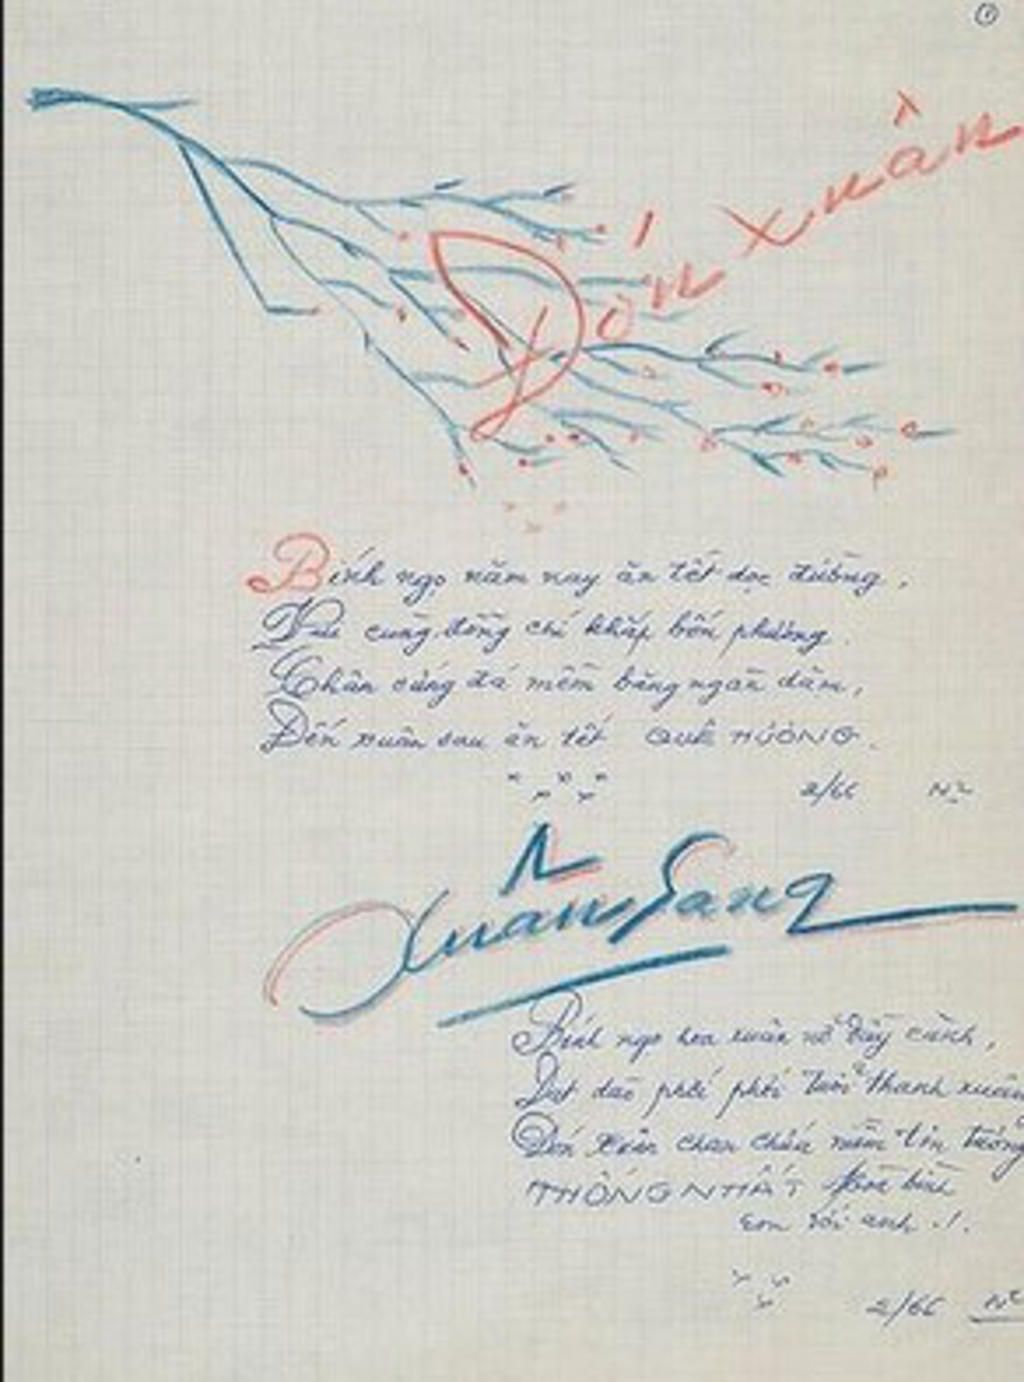 ①
Đón xuân
Bính ngọ năm nay ăn tết dọc đường,
Vui cùng đồng chí khắp bốn phương.
Chân cứng đá mềm băng ngàn dặm,
Đến xuân sau ăn tết QUÊ HƯƠNG.
2/66 N
Xuân Sang
Bính ngọ hoa xuân nở đầy cành,
Dạt dào phơi phới tuổi thanh xuân
Đón Xuân chan chứa niềm tin tưởng
THỐNG NHẤT hòa bình
em với anh ./.
2/66 N